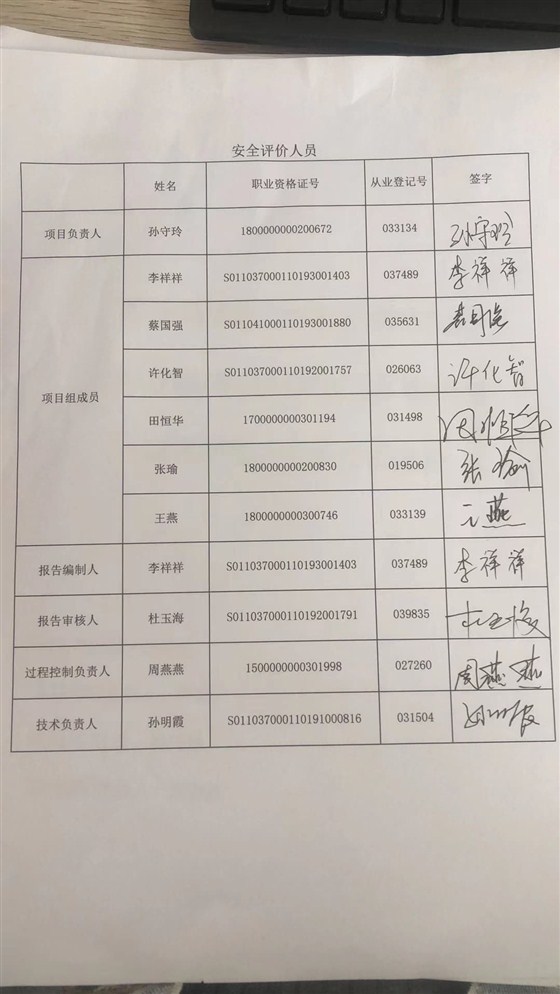 安全评价人员
姓名 职业资格证号 从业登记号 签字
项目负责人 孙守玲 1800000000200672 033134 孙守玲
项目组成员
李祥祥 S011037000110193001403 037489 李祥祥
蔡国强 S011041000110193001880 035631
许化智 S011037000110192001757 026063 许化智
田恒华 1700000000301194 031498
张瑜 1800000000200830 019506 张瑜
王燕 1800000000300746 033139 王燕
报告编制人 李祥祥 S011037000110193001403 037489 李祥祥
报告审核人 杜玉海 S011037000110192001791 039835 杜玉海
过程控制负责人 周燕燕 1500000000301998 027260 周燕燕
技术负责人 孙明霞 S011037000110191000816 031504